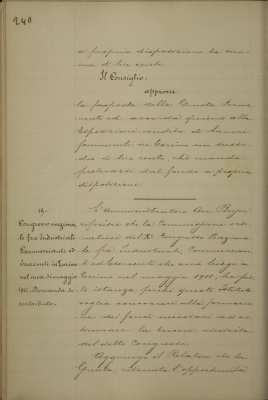 240
a propria disposizione la som-
ma di lire cento.
Il Consiglio:
approva
la proposta della Giunta
ed accorda
Esposizione vendita di lavori
femminili in Torino un sussi-
dio di lire cento, che manda
prelevarsi dal fondo a propria
disposizione.
19.
Congresso naziona-
le fra Industriali
Commercianti ed
Esercenti in Torino
nel mese di maggio
1911. Domanda di
contributo.
L'Amministratore Cav.
riferisce che la Commissione ordi-
natrice del Congresso Naziona-
le fra Industriali, Commercian-
ti ed Esercenti che avrà luogo in
Torino nel maggio 1911, ha fat-
to istanza perché questo Istituto
voglia concorrere alla formazio-
ne dei fondi necessari ad as-
sicurare la buona riuscita
del detto Congresso.
Aggiunge il Relatore che la
Giunta, l'opportunità